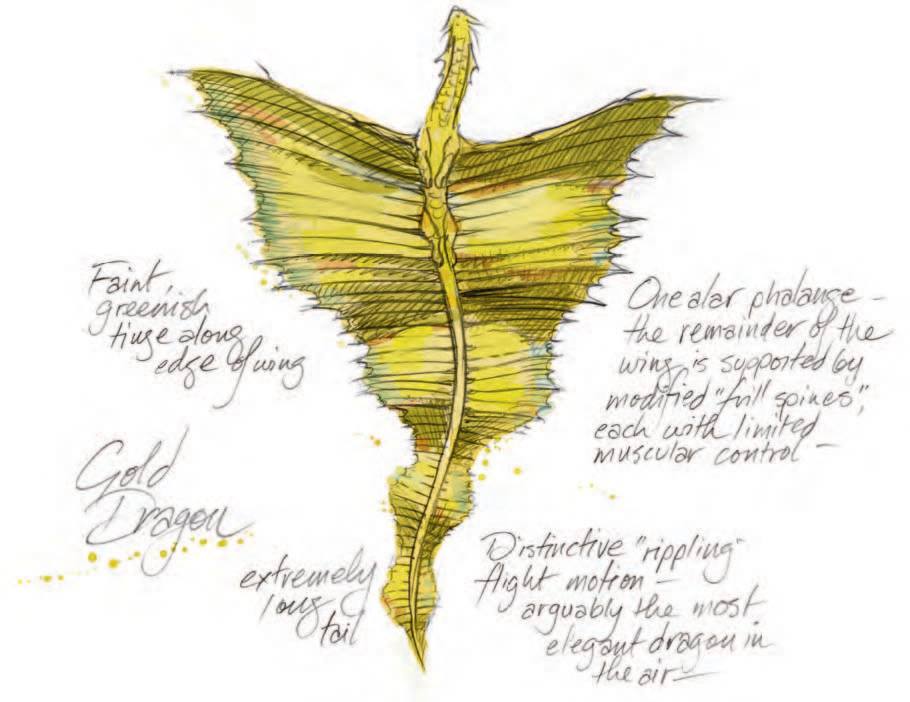 Faint,
greenish
tinge along
edge of wing
One alar phalange –
the remainder of the
wing is supported by
modified "frill spines",
each with limited
muscular control –
Gold
Dragon
extremely
long
tail
Distinctive "rippling"
flight motion –
arguably the most
elegant dragon in
the air –